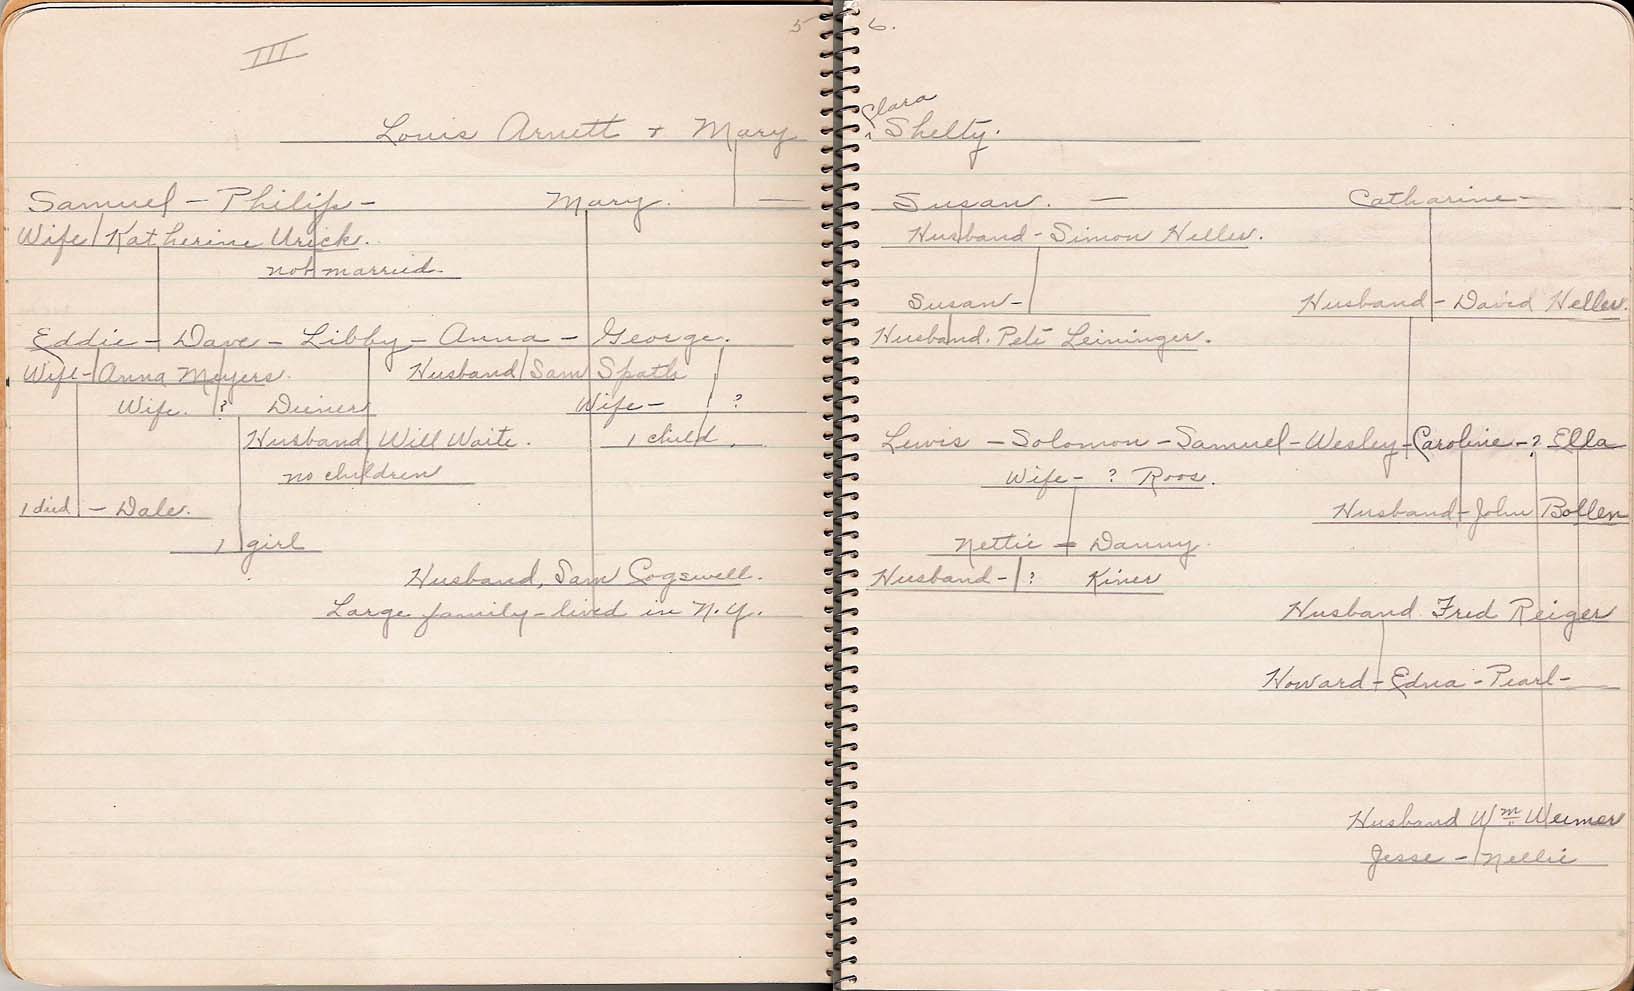 5
III
Louis Arnett + Mary
Samuel - Philip - Mary. -
Wife Katherine Urick.
not married.
Eddie - Dave - Libby - Anna - George.
Wife - Anna Meyers. Husband Sam Spath
Wife. ? Deiner Wife - ?
Husband Will Waite. 1 child.
no children
1 died - Dale.
1 girl
Husband, Sam Cogswell.
Large family - lived in N.Y.
6.
Clara
^ Shelty.
Susan. - Catharine -
Husband - Simon Heller.
Susan - Husband - David Heller.
Husband. Pete Leininger.
Lewis - Solomon - Samuel - Wesley - Caroline - ? Ella
Wife - ? Roos.
Husband - John Bollen
Nettie - Danny.
Husband - ? Kiner
Husband Fred Reiger
Howard - Edna - Pearl -
Husband Wm Weimer
Jesse - Nellie